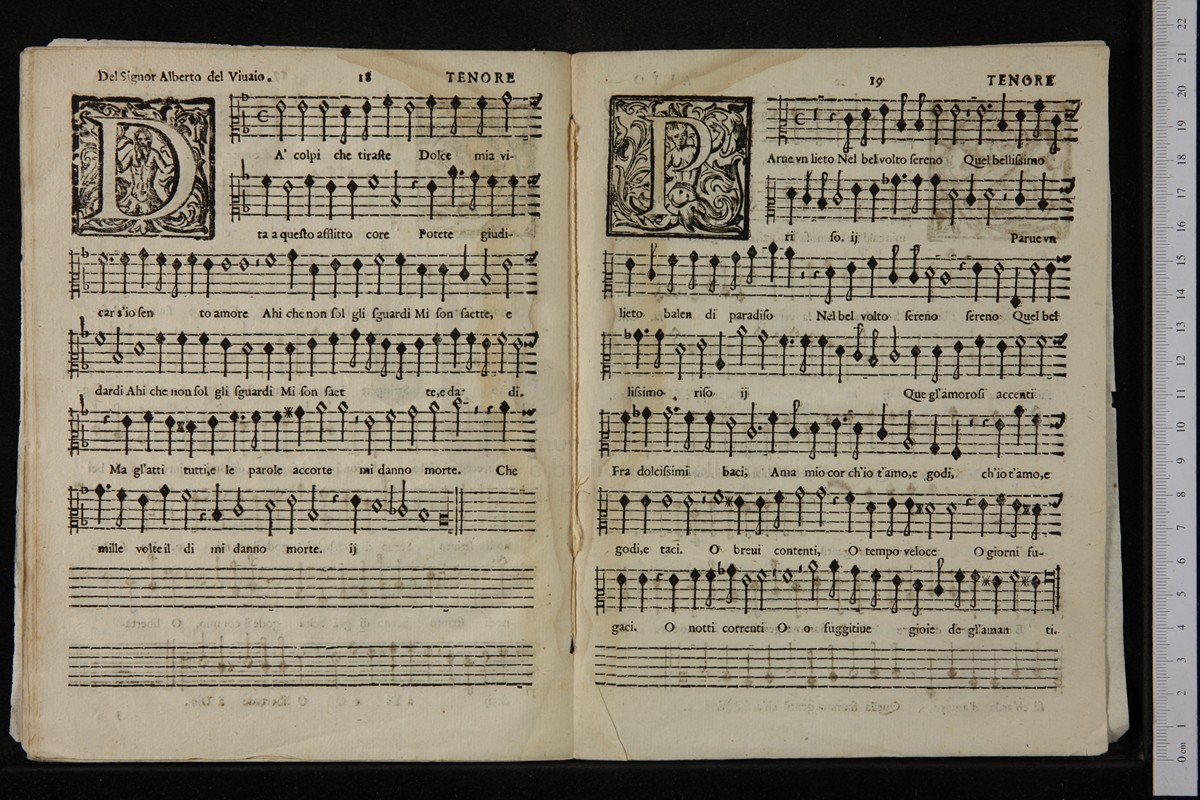 Del Signor Alberto del Viuaio.
18
TENORE
D
A' colpi che tiraste Dolce mia vi-
ta a questo afflitto core Potete giudi-
car s'io sen to amore Ahi che non sol gli sguardi Mi son saette, e
dardi Ahi che non sol gli sguardi Mi son saet te,e dar di.
Ma gl'atti tutti,e le parole accorte mi danno morte. Che
mille volte il di mi danno morte. ij
19
TENORE
P
Arue vn lieto Nel bel volto sereno Quel bellissimo
ri so. ij Parue vn
lieto balen di paradiso Nel bel volto sereno sereno Quel bel
lissimo riso ij Que gl'amorosi accenti
Fra dolcissimi baci, Ama mio cor ch'io t'amo,e godi, ch'io t'amo,e
godi,e taci. O breui contenti, O tempo veloce O giorni fu-
gaci. O notti correnti O o fuggitiue gioie de gl'aman ti.
22
21
20
19
18
17
16
15
14
13
12
11
10
9
8
7
6
5
4
3
2
1
0 cm